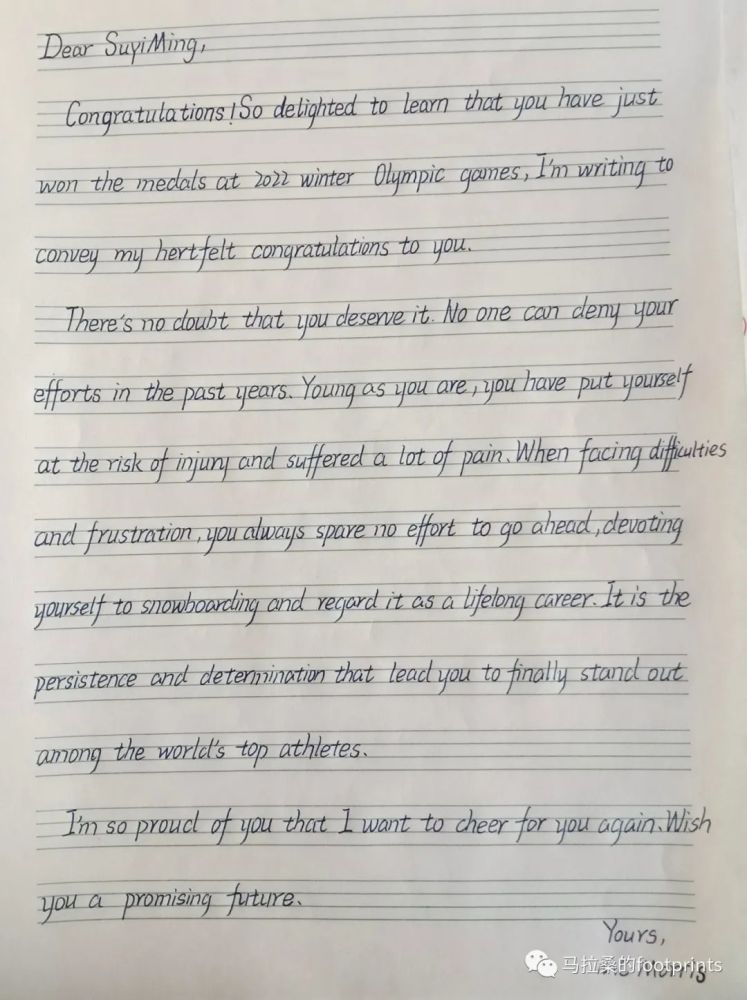 Dear SuyiMing,
Congratulations! So delighted to learn that you have just
won the medals at 2022 winter Olympic games, I'm writing to
convey my hertfelt congratulations to you.
There's no doubt that you deserve it. No one can deny your
efforts in the past years. Young as you are, you have put yourself
at the risk of injury and suffered a lot of pain. When facing difficulties
and frustration, you always spare no effort to go ahead, devoting
yourself to snowboarding and regard it as a lifelong career. It is the
persistence and determination that lead you to finally stand out
among the world's top athletes.
I'm so proud of you that I want to cheer for you again. Wish
you a promising future.
Yours,
马拉桑的footprints
Morris